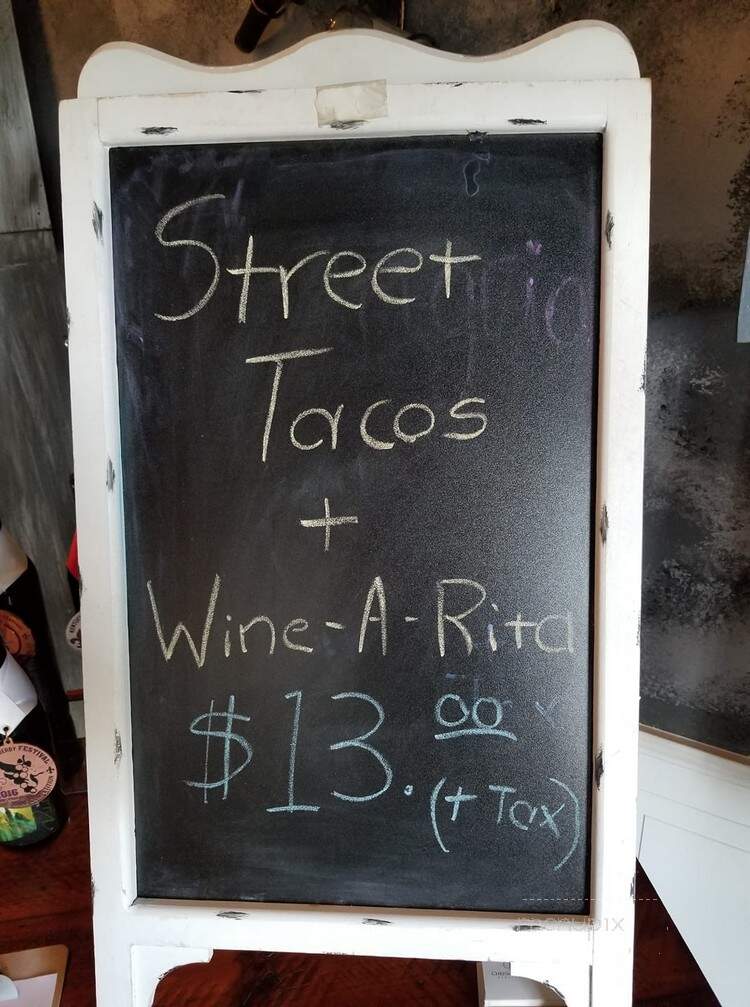 Street
Tacos
+
Wine-A-Rita
$13.00
(+ Tax)
FESTIVAL
2016